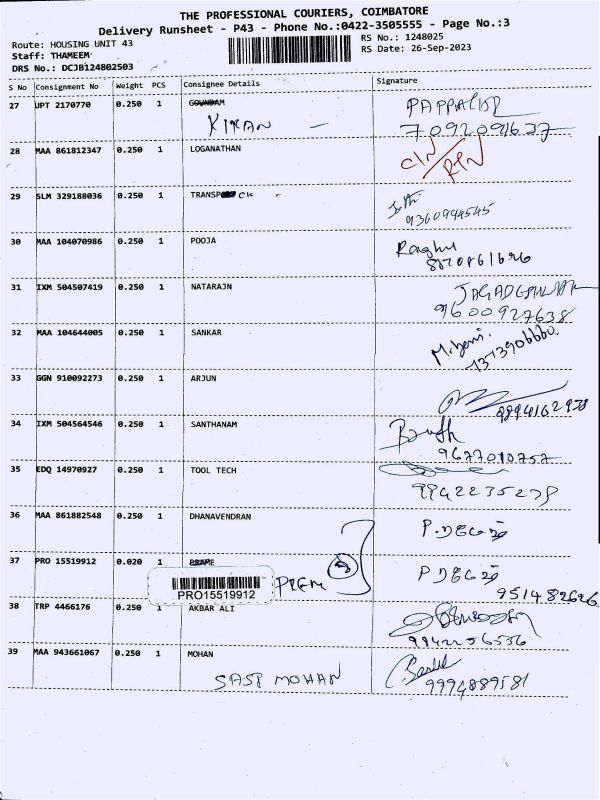 THE PROFESSIONAL COURIERS, COIMBATORE
Delivery Runsheet - P43 - Phone No.:0422-3505555 - Page No.:3
Route: HOUSING UNIT 43
RS No.: 1248025
Staff: THAMEEM
RS Date: 26-Sep-2023
DRS No.: DCJB124802503
S No Consignment No Weight PCS Consignee Details Signature
27 UPT 2170770 0.250 1 GOUNDAM
KIRAN
28 MAA 861812347 0.250 1 LOGANATHAN
29 SLM 329188036 0.250 1 TRANSP CK
9360994545
30 MAA 104070986 0.250 1 POOJA
31 IXM 504507419 0.250 1 NATARAJN
9600927638
32 MAA 104644005 0.250 1 SANKAR
33 GGN 910092273 0.250 1 ARJUN
34 IXM 504564546 0.250 1 SANTHANAM
9677010757
35 EDQ 14970927 0.250 1 TOOL TECH
9942235278
36 MAA 861882548 0.250 1 DHANAVENDRAN
37 PRO 15519912 0.020 1
PREM
951482626
PRO15519912
38 TRP 4466176 0.250 1 AKBAR ALI
39 MAA 943661067 0.250 1 MOHAN
SASI MOHAN
9994889581